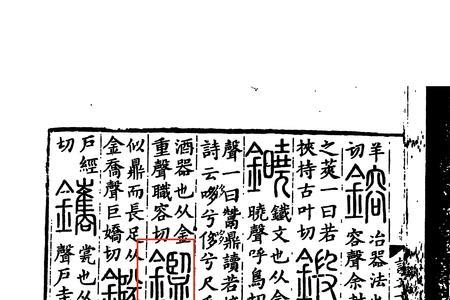 羊
切
鎔
冶器法
容聲余封
之莢一曰若
挾持古叶切
鍛
鐃
鐵文也从金
曉聲呼鳥切
聲一曰鬵鼎讀若
詩云哆兮侈兮尺
酒器也从金
重聲職容切
似鼎而長足从
金喬聲巨嬌切
戶經
切
鑴
瓽也从
聲戶圭